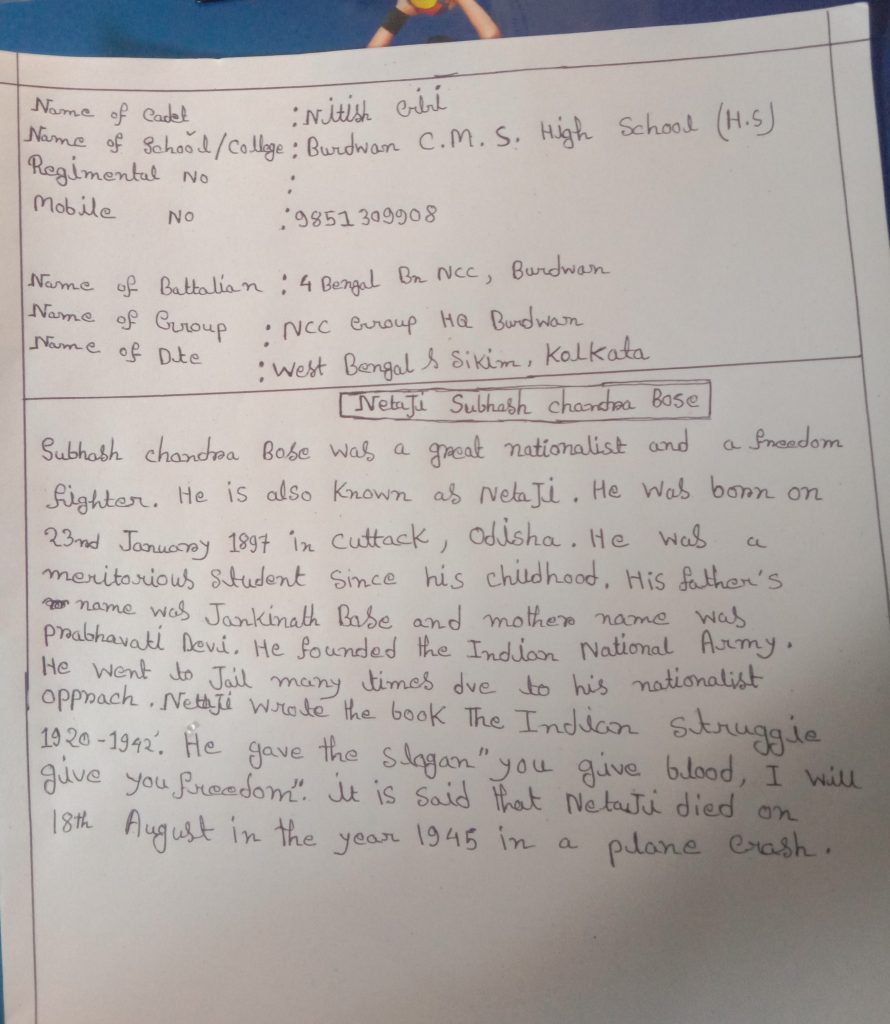 Name of Cadet : Nitish Giri
Name of School/College : Burdwan C.M.S. High School (H.S)
Regimental No :
Mobile No : 9851309908
Name of Battalian : 4 Bengal Bn NCC, Burdwan
Name of Group : NCC Group HQ Burdwan
Name of Dte : West Bengal & Sikim, Kolkata
NetaJi Subhash chandra Bose
Subhash chandra Bose was a great nationalist and a freedom
fighter. He is also Known as NetaJi. He was born on
23rd January 1897 in Cuttack, Odisha. He was a
meritorious Student Since his childhood. His father's
name was Jankinath Base and mothers name was
prabhavati Devi. He founded the Indian National Army.
He went to Jail many times due to his nationalist
opproach. NetaJi wrote the book The Indian Struggie
1920-1942'. He gave the Slagan "you give blood, I will
give you freedom". it is Said that NetaJi died on
18th August in the year 1945 in a plane Crash.